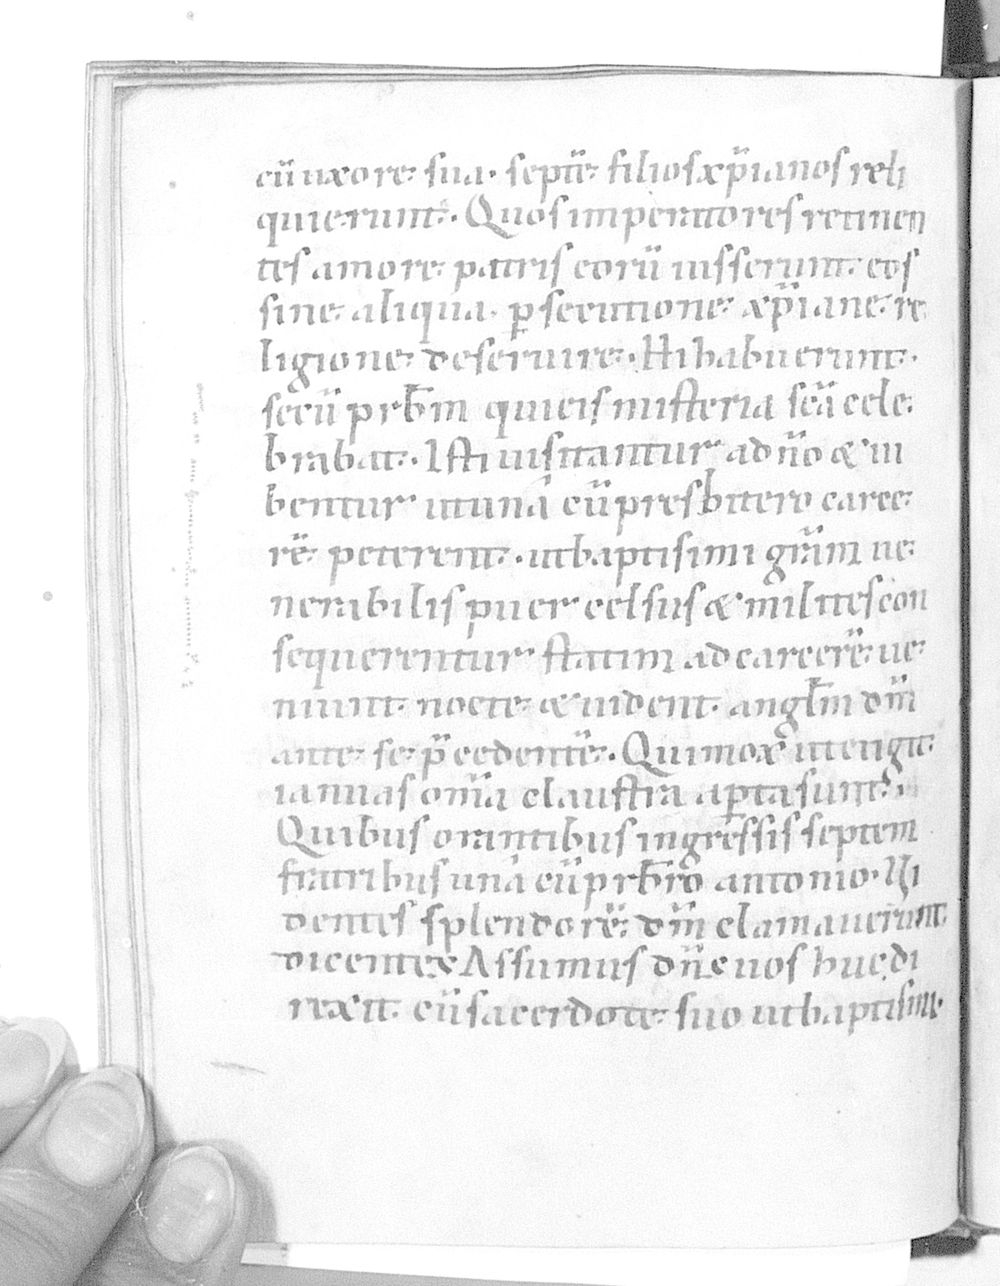 cū uxore sua. septē filios xp̄ianos reli
quierunt. Quos imperatores retinen
tes amore patris eorū iusserunt eos
sine aliqua p̱secutione xp̄iane re
ligione deseruire. Hi habuerunt
secū prb̄m qui eis misteria sc̄a cele
brabat. Isti uisitantur ad n̄o & iu
bentur ut unā cū presbitero carce
rē peterent. ut baptisimi grām ue
nerabilis puer celsus & milites con
sequerentur statim ad carcerē ue
niunt nocte & uident angl̄m dn̄i
ante se p̄cedentē. Qui mox ut tetigit
ianuas om̄a claustra ap̱ta sunt.
Quibus orantibus ingressis septem
fratribus unā cū prb̄ro antonio. Ui
dentes splendorē dn̄i clamauerunt
dicentes Assumus dn̄e nos huc di
rexit cū sacerdote suo ut baptisim.